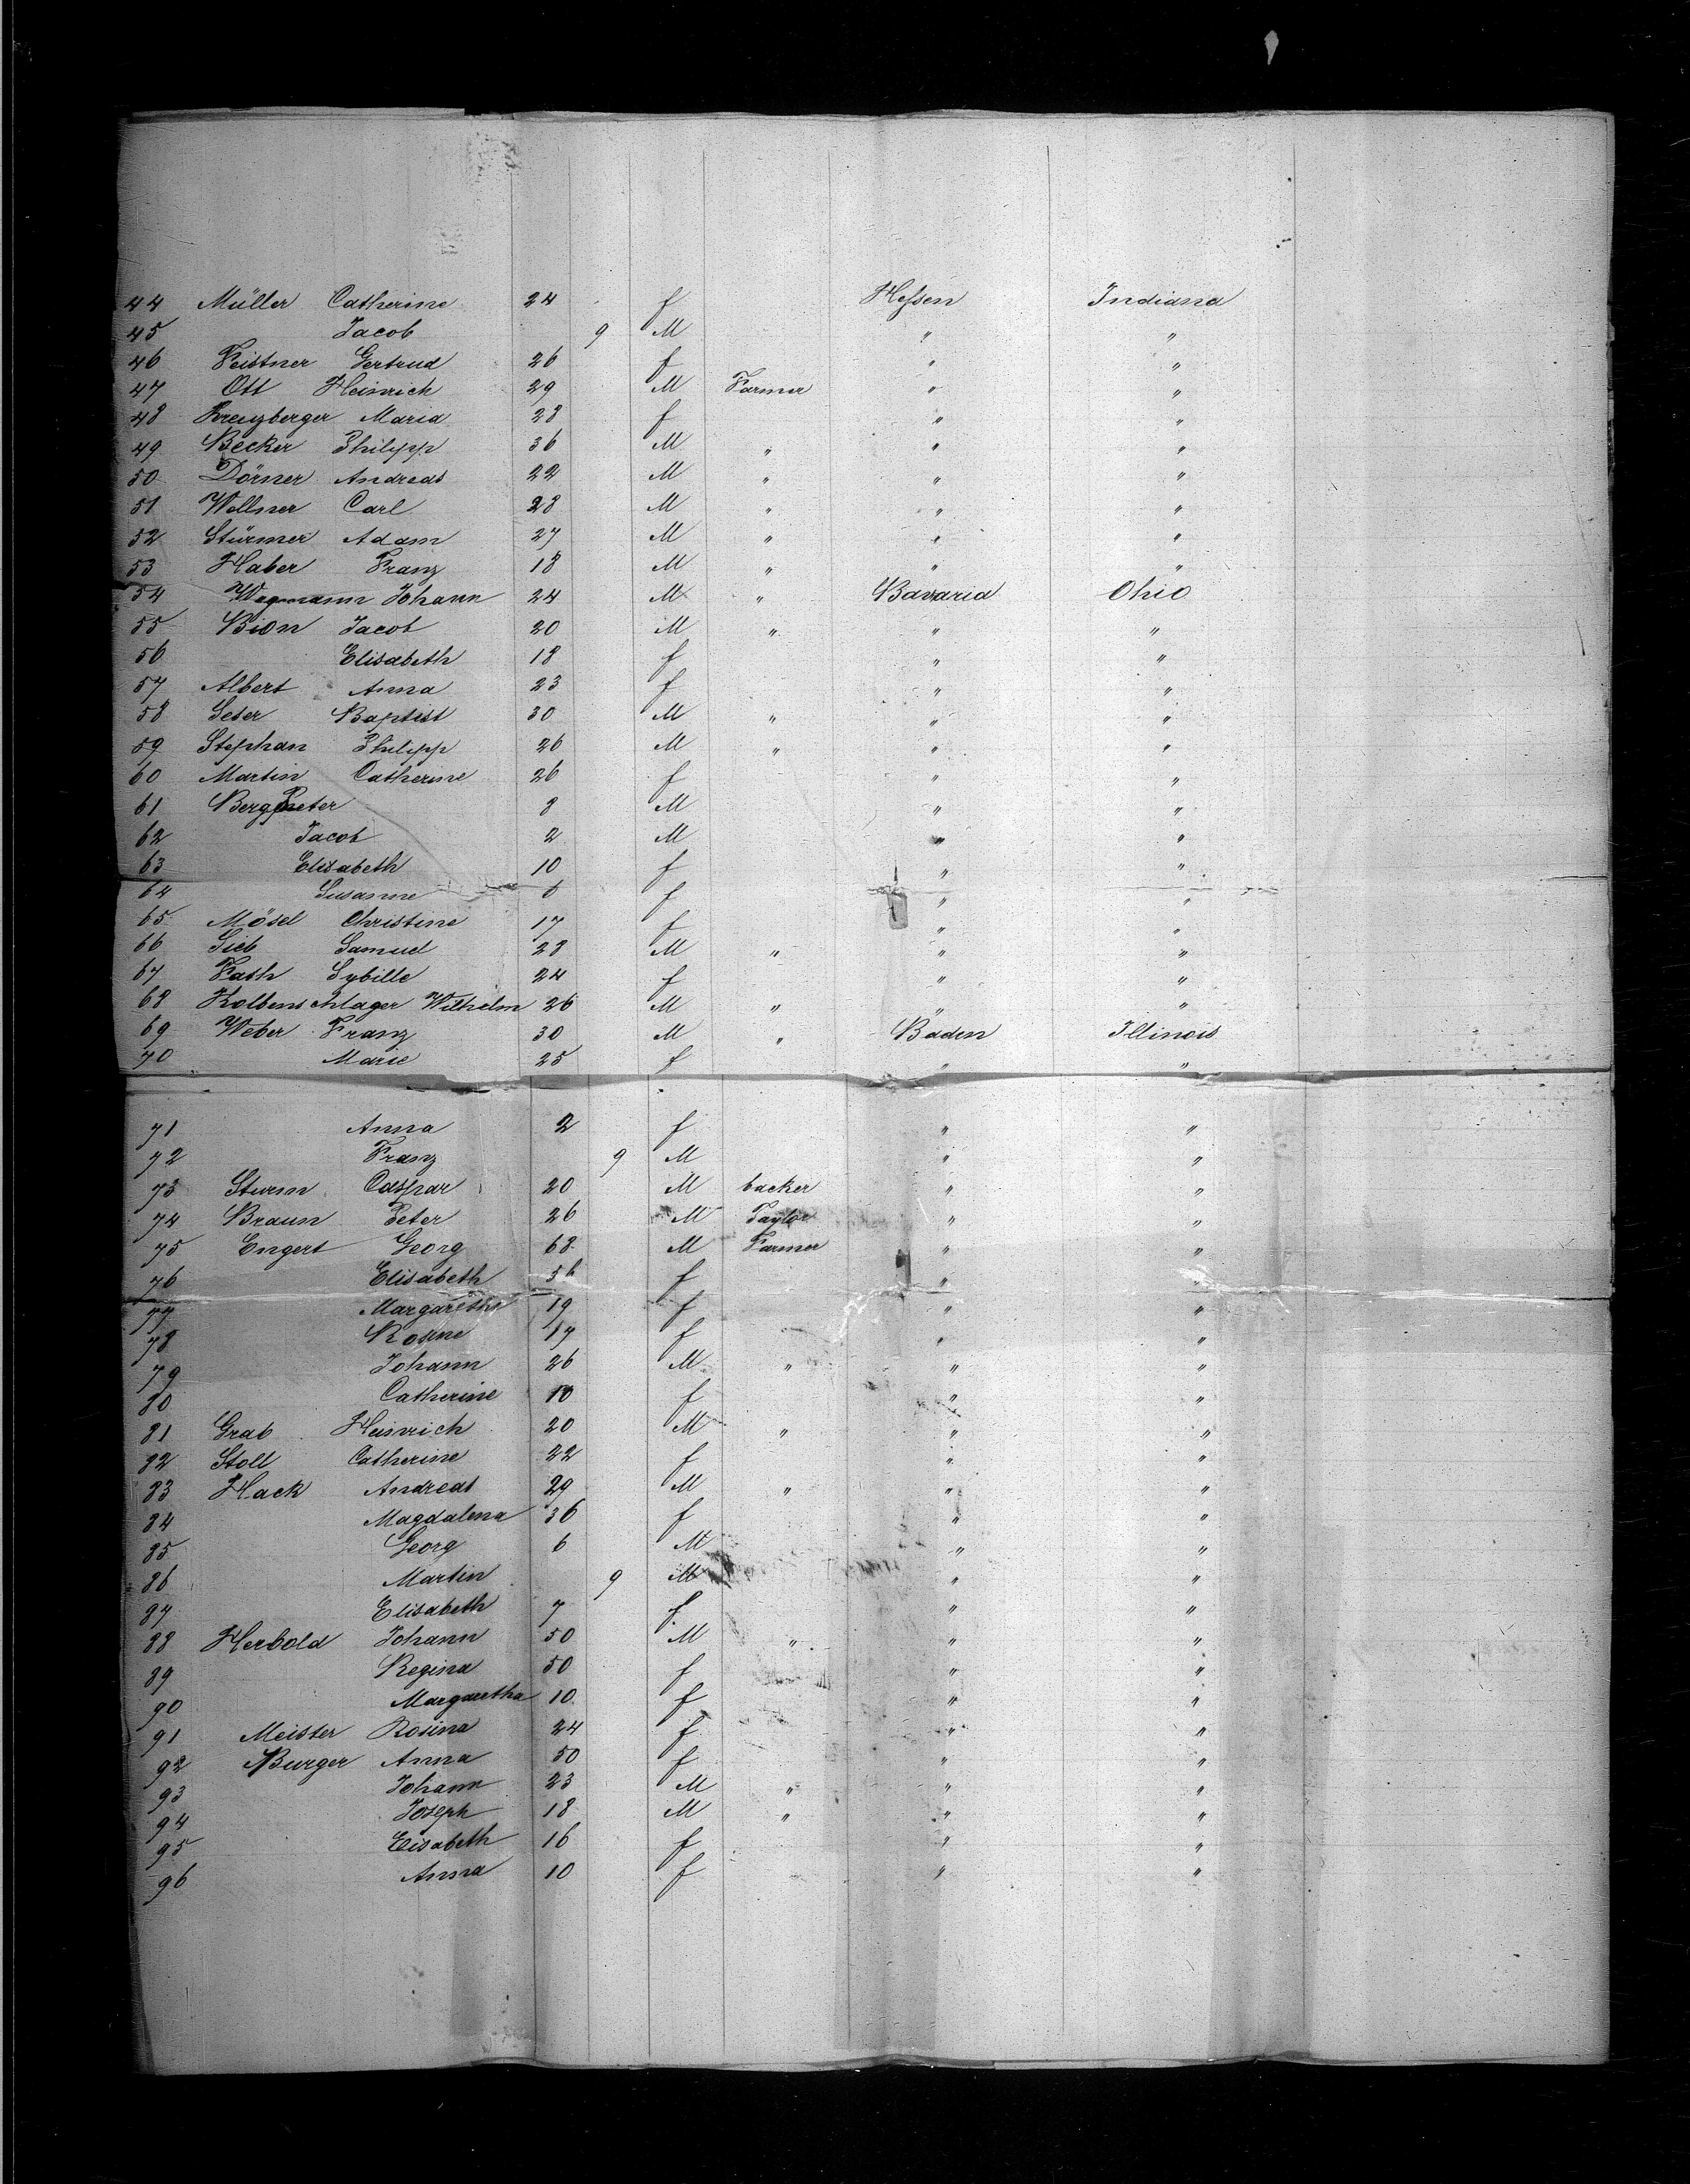 44 Müller Catherine 24 f Hessen Indiana
45 Jacob 9 M " "
46 Feistner Gertrud 26 f " "
47 Ott Heinrich 29 M Farmer " "
48 Kreuzberger Maria 28 f " "
49 Becker Philipp 36 M " " "
50 Dörner Andreas 22 M " " "
51 Wollner Carl 28 M " " "
52 Stürmer Adam 27 M " " "
53 Haber Franz 18 M " " "
54 Wagmann Johann 24 M " Bavaria Ohio
55 Bion Jacob 20 M " " "
56 Elisabeth 18 f " "
57 Albert Anna 23 f " "
58 Seter Baptist 30 M " " "
59 Stephan Philipp 26 M " " "
60 Martin Catherine 26 f " "
61 Berg Peter 8 M " "
62 Jacob 2 M " "
63 Elisabeth 10 f " "
64 Susanne 6 f " "
65 Mösel Christine 17 f " "
66 Sieb Samuel 28 M " " "
67 Fath Sybille 24 f " "
68 Kolbenschlager Wilhelm 26 M " " "
69 Weber Franz 30 M " Baden Illinois
70 Marie 25 f " "
71 Anna 2 f " "
72 Franz 9 M " "
73 Sturm Caspar 20 M backer " "
74 Braun Peter 26 M Taylor " "
75 Engert Georg 68 M Farmer " "
76 Elisabeth 56 f " "
77 Margaretha 19 f " "
78 Rosine 17 f " "
79 Johann 26 M " " "
80 Catherine 10 f " "
81 Grab Heinrich 20 M " " "
82 Stoll Catherine 22 f " "
83 Hack Andreas 29 M " " "
84 Magdalena 36 f " "
85 Georg 6 M " "
86 Martin 9 M " "
87 Elisabeth 7 f " "
88 Herbold Johann 50 M " " "
89 Regina 50 f " "
90 Margaretha 10 f " "
91 Meister Rosina 24 f " "
92 Burger Anna 50 f " "
93 Johann 23 M " " "
94 Joseph 18 M " " "
95 Elisabeth 16 f " "
96 Anna 10 f " "